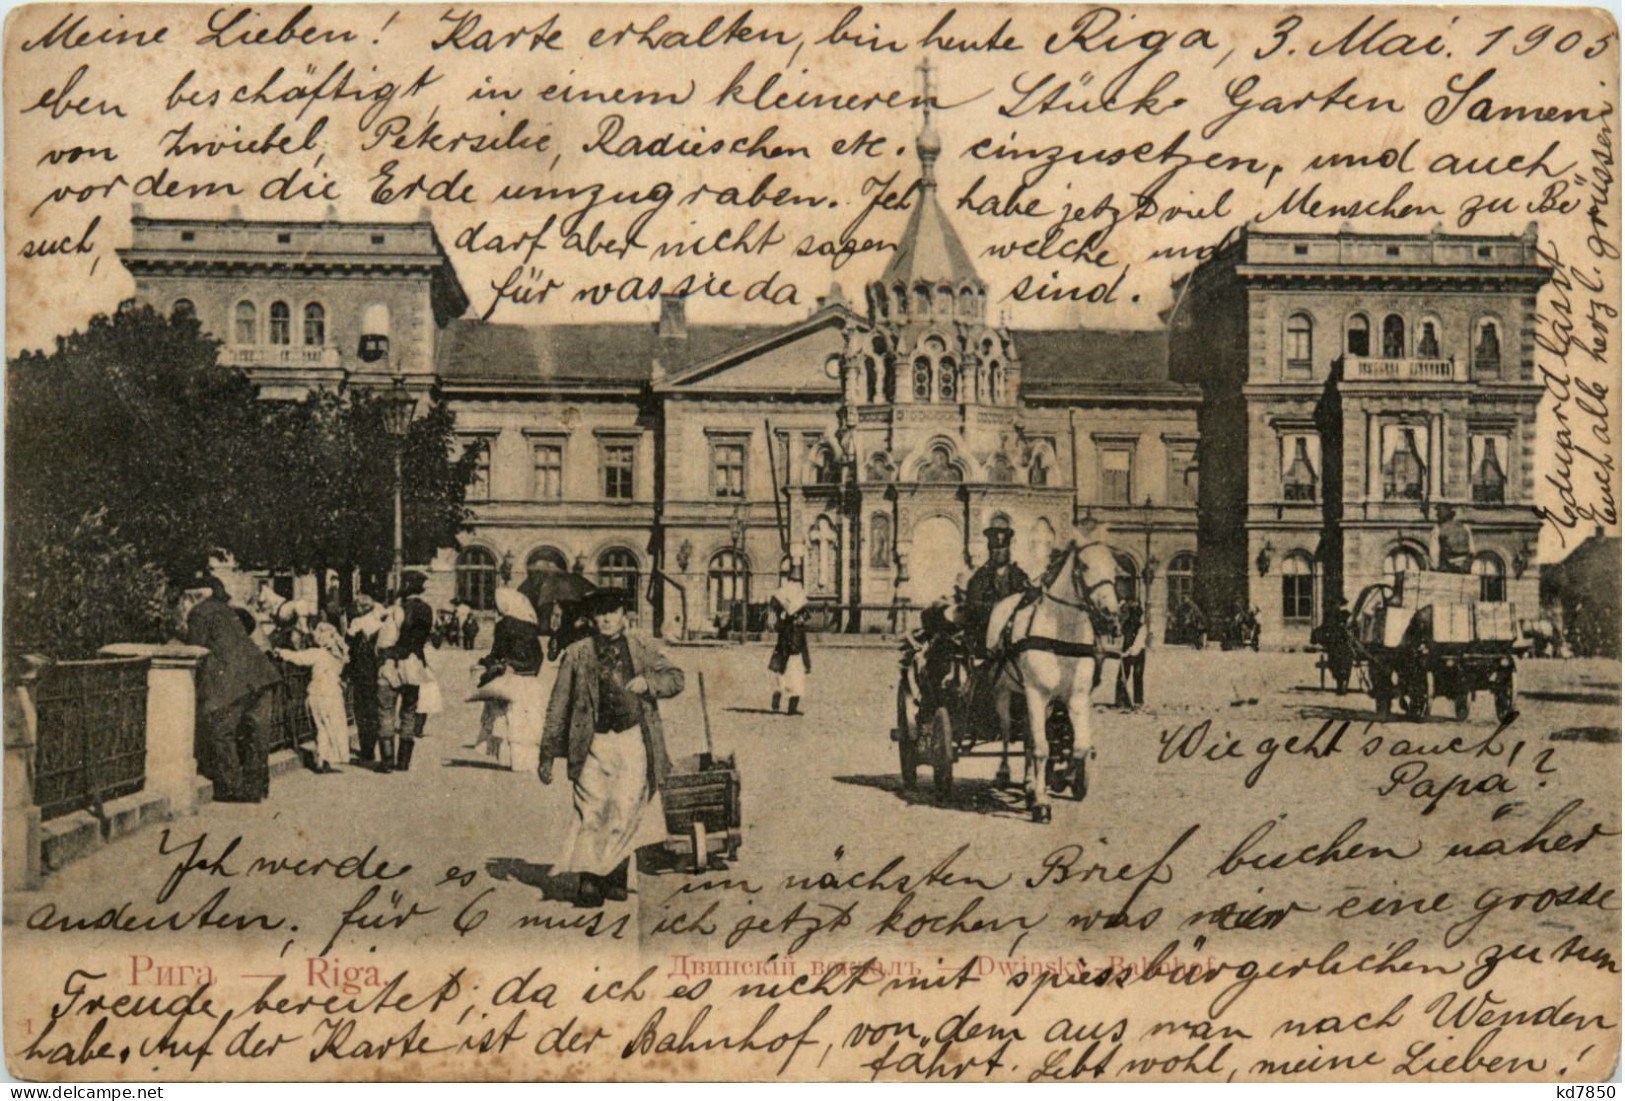 Meine Lieben! Karte erhalten, bin heute Riga, 3. Mai. 1905
eben beschäftigt, in einem kleineren Stück Garten Samen
von Zwiebel, Petersilie, Radieschen etc. einzusetzen, und auch
vordem die Erde umzugraben. Ich habe jetzt viel Menschen zu Be
such, darf aber nicht sagen, welche, und
für was sie da sind.
Eduard lässt
Euch alle herzl. grüssen!
Wie geht's auch,
Papa?
Ich werde es im nächsten Brief bischen näher
andeuten, für 6 muss ich jetzt kochen, was mir eine grosse
Рига — Riga.
Двинскій вокзалъ — Dwinsky-Bahnhof
Freude bereitet, da ich es nicht mit spiessbürgerlichen zu tun
habe. Auf der Karte ist der Bahnhof, von dem aus man nach Wenden
fährt. Lebt wohl, meine Lieben!
1
kd7850